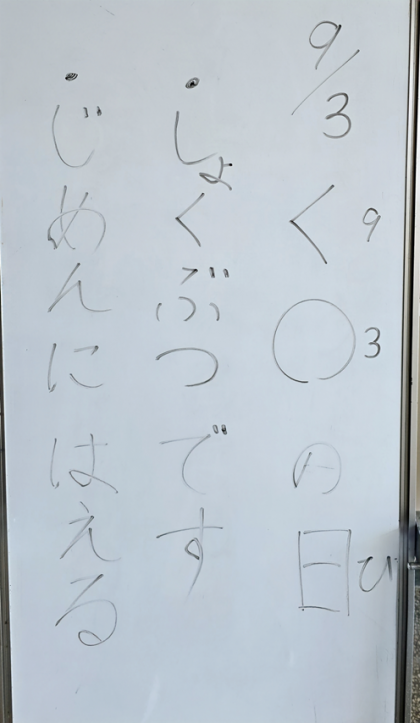 9/3
く○の日
9
3
ひ
・しょくぶつです
・じめんにはえる